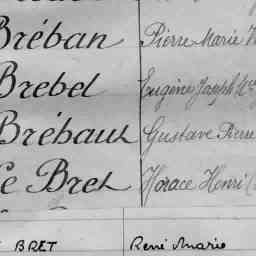 Bréban Pierre Marie
Brebel Eugène Joseph
Bréhaut Gustave Pierre
Le Bret Horace Henri
BRET René Marie